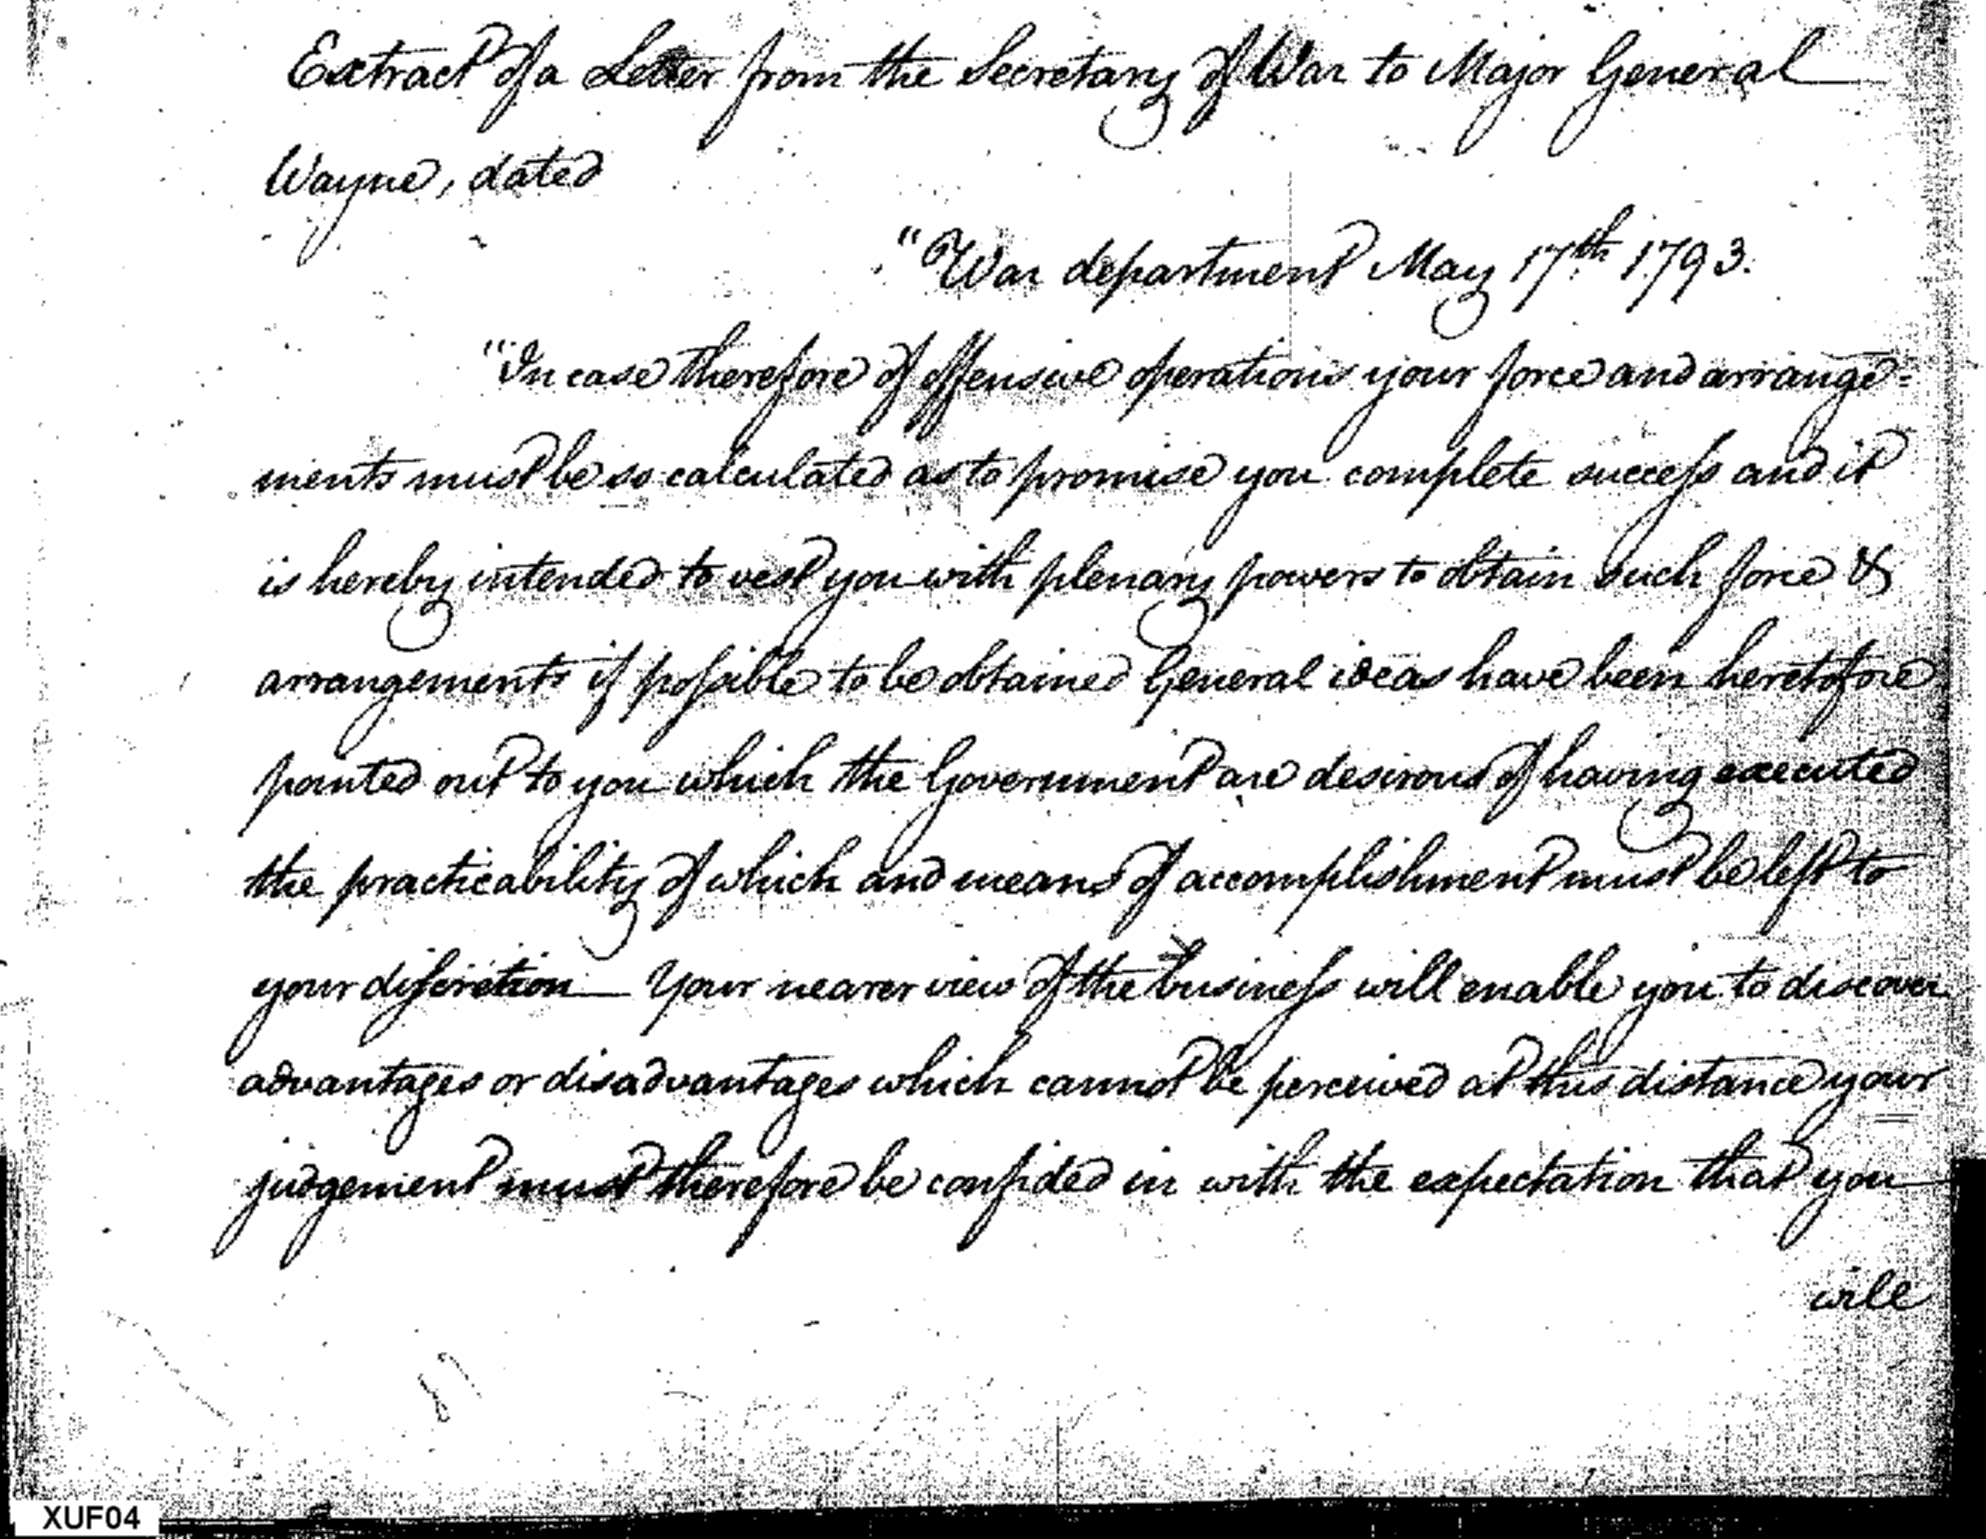 Extract of a Letter from the Secretary of War to Major General
Wayne, dated
"War department May 17th 1793.
"In case therefore of offensive operations your force and arrange=
ments must be so calculated as to promise you complete success and it
is hereby intended to vest you with plenary powers to obtain such force &
arrangements if possible to be obtained General ideas have been heretofore
pointed out to you which the Government are desirous of having executed
the practicability of which and means of accomplishment must be left to
your discretion — Your nearer view of the business will enable you to discover
advantages or disadvantages which cannot be perceived at this distance your
judgement must therefore be confided in with the expectation that you
will
XUF04